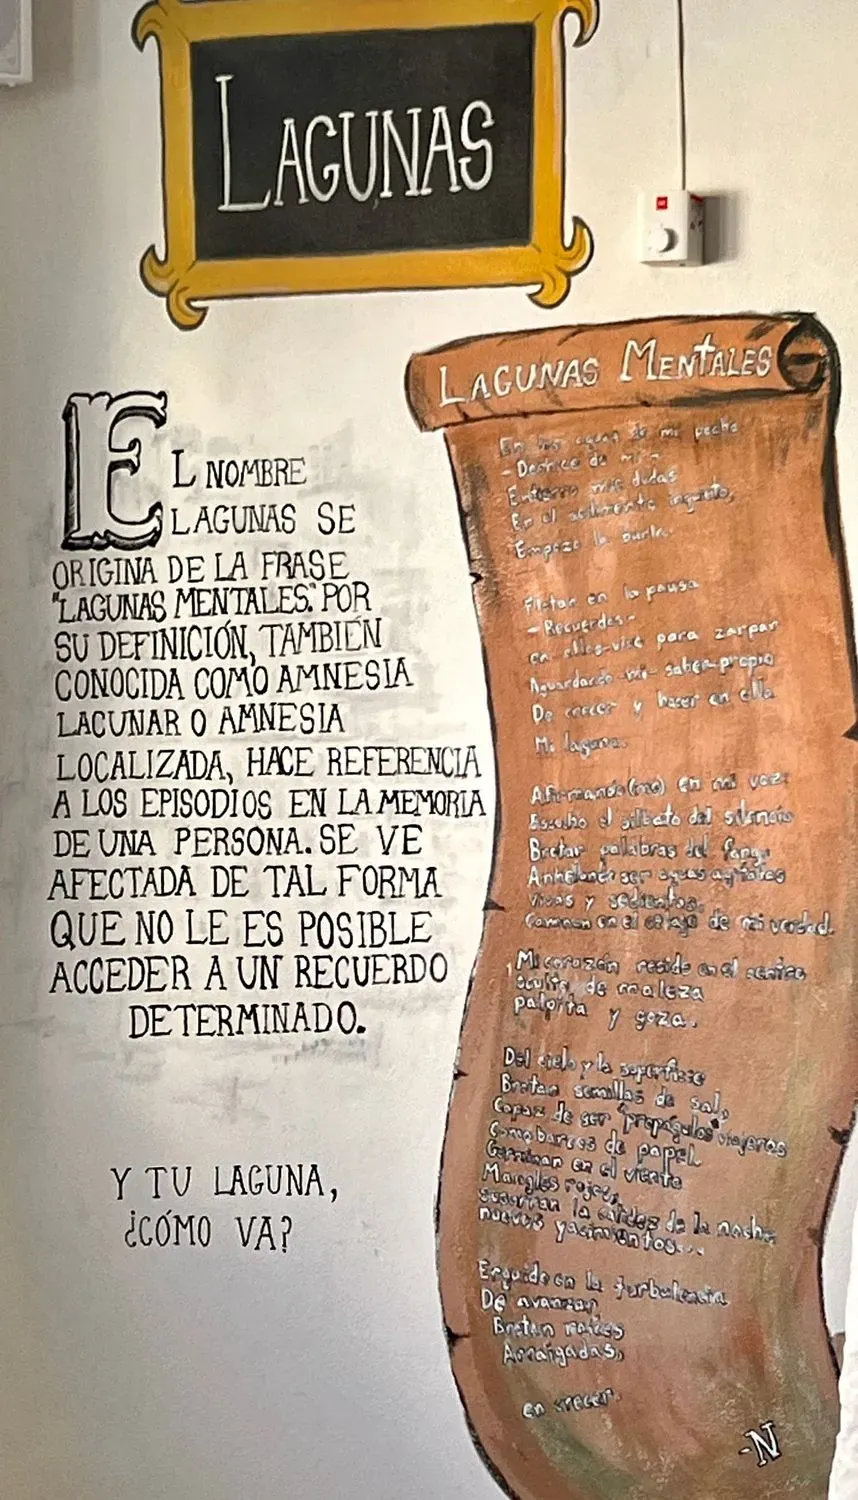 LAGUNAS
EL NOMBRE
LAGUNAS SE
ORIGINA DE LA FRASE
"LAGUNAS MENTALES". POR
SU DEFINICIÓN, TAMBIÉN
CONOCIDA COMO AMNESIA
LACUNAR O AMNESIA
LOCALIZADA, HACE REFERENCIA
A LOS EPISODIOS EN LA MEMORIA
DE UNA PERSONA. SE VE
AFECTADA DE TAL FORMA
QUE NO LE ES POSIBLE
ACCEDER A UN RECUERDO
DETERMINADO.
Y TU LAGUNA,
¿CÓMO VA?
LAGUNAS MENTALES
En las aguas de mi pecho
- Dentro de mi -
Entierro mis dudas
En el sedimento inquieto,
Empezó la burla.
Flotar en la pausa
- Recuerdos -
en ellos viví para zarpar
Aguardando mi saber propio
De crecer y hacer en ella
Mi laguna.
Afirmando(me) en mi voz:
Escucho el silbato del silencio
Brotar palabras del fango
Anhelando ser aguas agitadas
Vivas y sedientas.
Caminan en el de mi verdad.
Mi corazón reside en el centro
oculto de maleza
palpita y goza.
Del cielo y la superficie
Brotan semillas de sal,
Capaz de ser "propágulos" viajeros
Como barcos de papel
Germinan en el viento
Mangles rojos,
susurran la calidez de la noche
nuevos yacimientos...
Erguido en la turbulencia
De avanzar,
Brotan raíces
Arraigadas,
en crecer.
-N